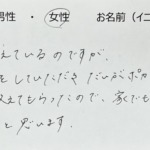 男性 ・ 女性 お名前（イニ
えているのですが、
をしていただき だいがポカ
教えてもらったので、家でも
と思います。